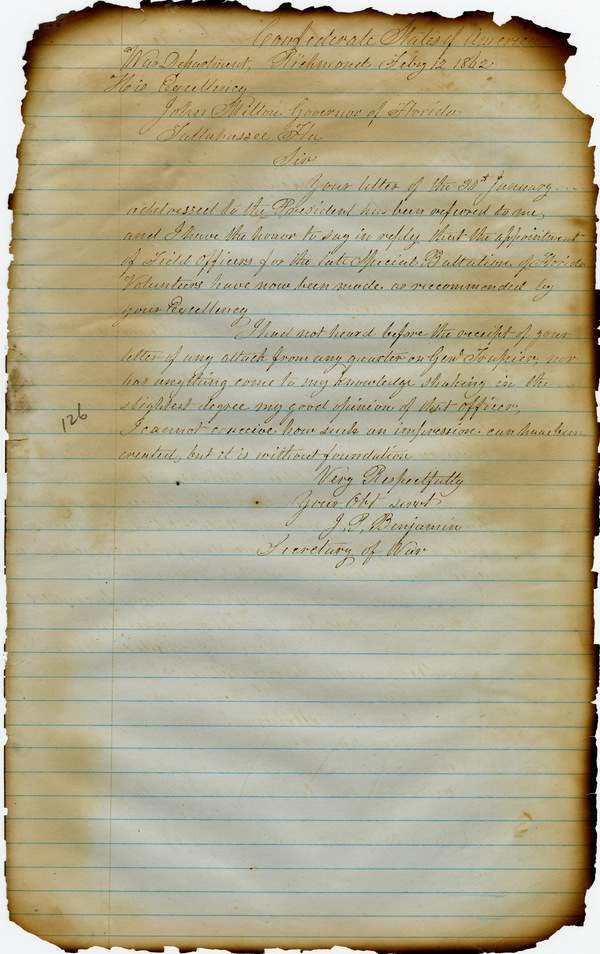 Confederate States of Americ
War Department, Richmond Feby 12 1862
His Excellency
John Milton Governor of Florida
Tallahassee Fla
Sir
Your letter of the 30th January
addressed to the President has been referred to me,
and I have the honor to say in reply that the appointment
of Field Officers for the late Special Battalion of Florida
Volunteers have now been made as reccommended by
your Excellency
I had not heard before the receipt of your
letter of any attack from any quarter on Genl Trapier, nor
has anything come to my knowledge shaking in the
slightest degree my good opinion of that officer,
I cannot conceive how such an impression can have been
created, but it is without foundation
Very Respectfully
Your Obt servt
J. P. Benjamin
Secretary of War
126